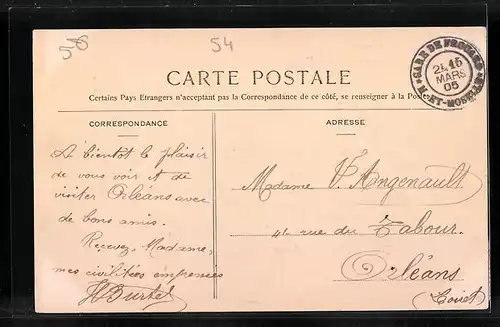 56
54
GARE DE FROUARD
15
MARS
05
Mthe-ET-MOSELLE
CARTE POSTALE
Certains Pays Etrangers n'acceptant pas la Correspondance de ce côté, se renseigner à la Poste
CORRESPONDANCE
A bientôt le plaisir
de vous voir et de
visiter Orléans avec
de bons amis.
Recevez, Madame,
mes civilités empressées
HBurtel
ADRESSE
Madame V. Angenault
46 rue du Tabour.
Orléans
(Loiret)